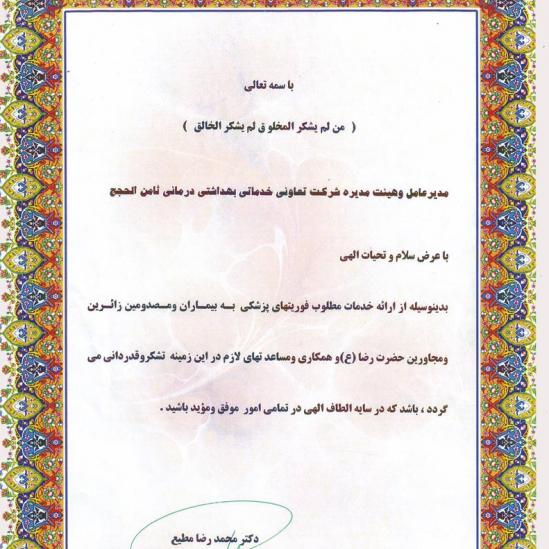 با سمه تعالی
( من لم یشکر المخلو ق لم یشکر الخالق )
مدیرعامل وهیئت مدیره شرکت تعاونی خدماتی بهداشتی درمانی ثامن الحجج
با عرض سلام و تحیات الهی
بدینوسیله از ارائه خدمات مطلوب فوریتهای پزشکی به بیماران ومصدومین زائرین
ومجاورین حضرت رضا (ع)و همکاری ومساعد تهای لازم در این زمینه تشکروقدردانی می
گردد ، باشد که در سایه الطاف الهی در تمامی امور موفق ومؤید باشید .
دکتر محمد رضا مطیع